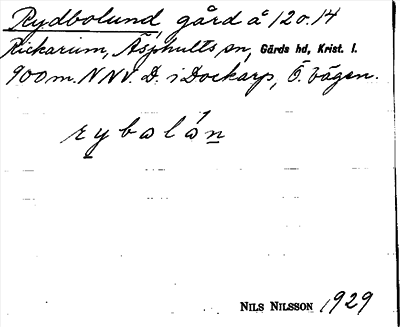 Rydbolund, gård å 12 o. 14
Rickarum, Äsphults sn, Gärds hd, Krist. l.
900 m. NNV. D. i Dockarp, Ö. vägen.
rybolán
NILS NILSSON 1929